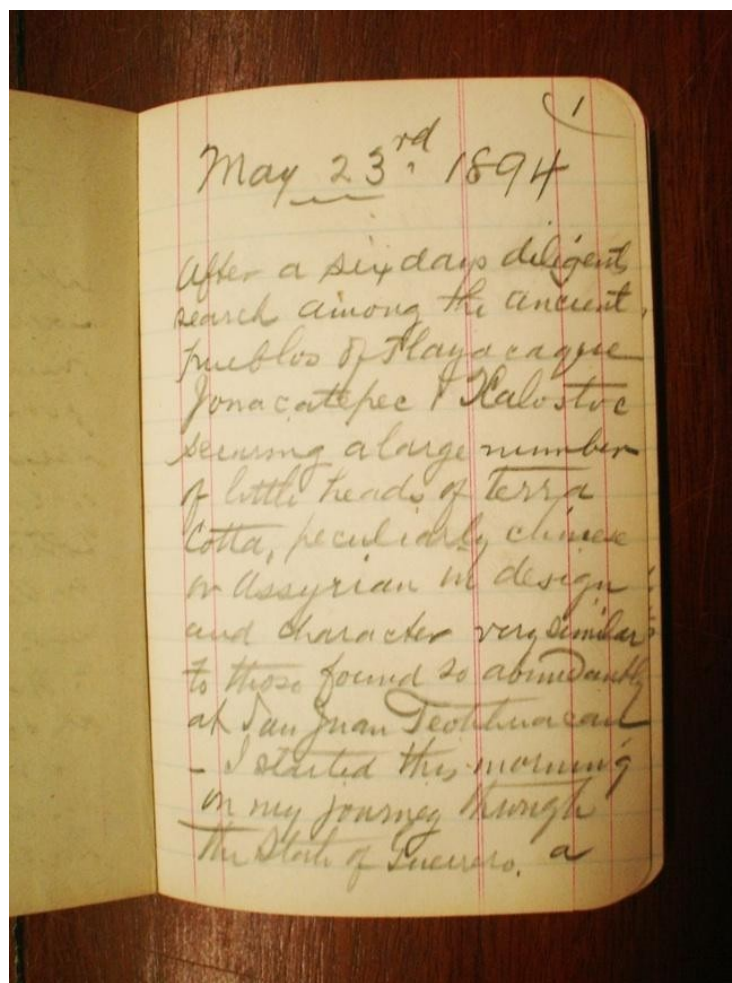 1
May 23rd. 1894
After a six days diligent
search among the ancient
pueblos of Tlayacaque
Jonacatepec & Xalostoc
securing a large number
of little heads of terra
Cotta, peculiarly chinese
or Assyrian in design
and character very similar
to those found so abundantly
at San Juan Teotihuacan
- I started this morning
on my journey through
the State of Guerrero. a